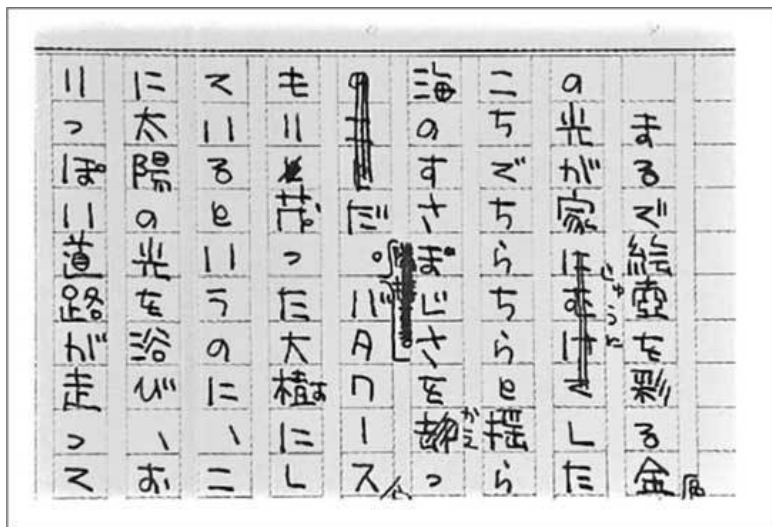 まるで絵壺を彩る金
の光が家はむけさした
こちでちらちらと揺ら
海のすさぽじさを
だ。バタワース
もり茂った大植にし
ているというのに、こ
に太陽の光を浴び、お
りっぽい道路が走って